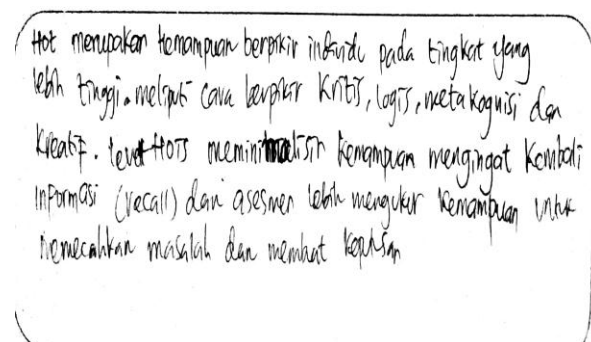 Hot merupakan kemampuan berpikir individu pada tingkat yang
lebih tinggi. meliputi cara berpikir Kritis, logis, metakognisi dan
Kreatif. level HOTS meminimalisir kemampuan mengingat Kembali
informasi (recall) dan asesmen lebih mengukur kemampuan untuk
memecahkan masalah dan membuat keputusan